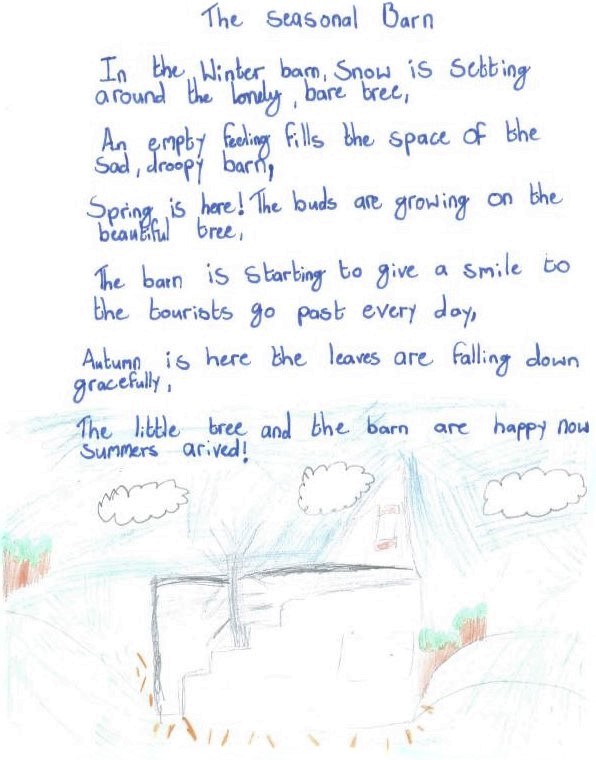 The seasonal Barn
In the Winter barn, Snow is setting
around the lonely, bare tree,
An empty feeling fills the space of the
sad, droopy barn,
Spring is here! The buds are growing on the
beautiful tree,
The barn is starting to give a smile to
the tourists go past every day,
Autumn is here the leaves are falling down
gracefully,
The little tree and the barn are happy now
summers arived!